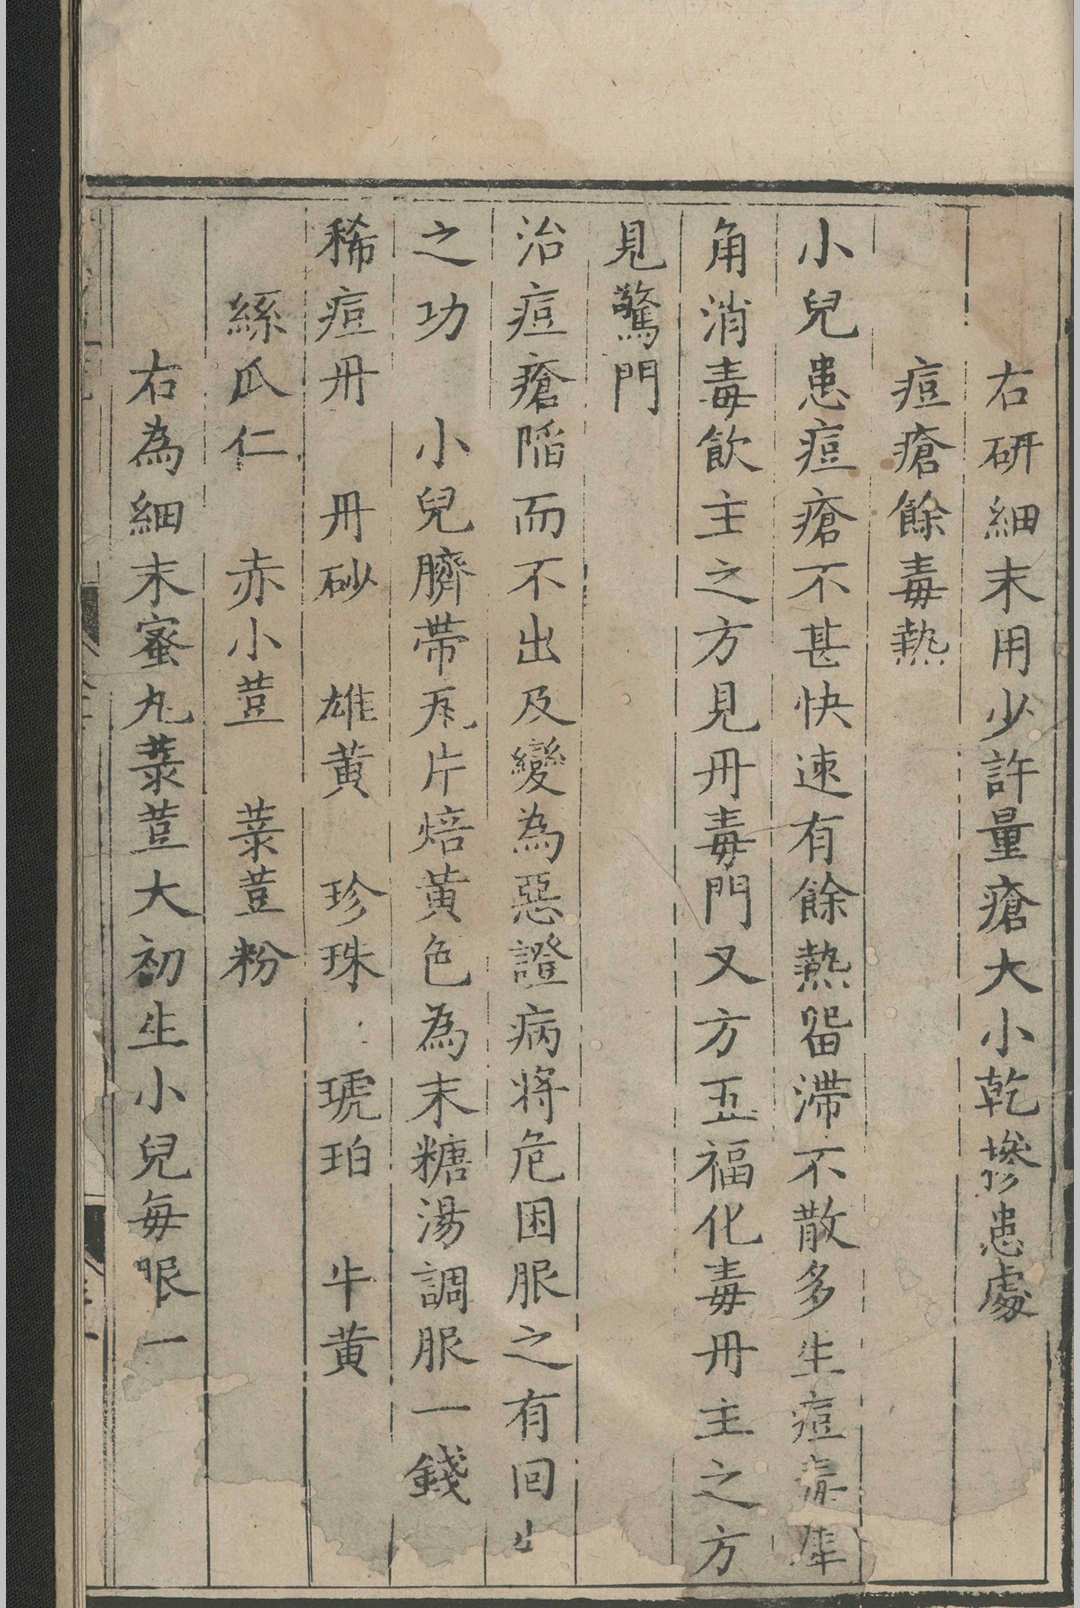 右研細末用少許量瘡大小乾摻患處
痘瘡餘毒熱
小兒患痘瘡不甚快速有餘熱畱滯不散多生痘毒犀
角消毒飲主之方見丹毒門又方五福化毒丹主之方
見驚門
治痘瘡陷而不出及變為惡證病將危困服之有回生
之功　小兒臍帶瓦片焙黃色為末糖湯調服一錢
稀痘丹　丹砂　雄黃　珍珠　琥珀　牛黃
絲瓜仁　赤小荳　菉荳粉
右為細末蜜丸菉荳大初生小兒每服一